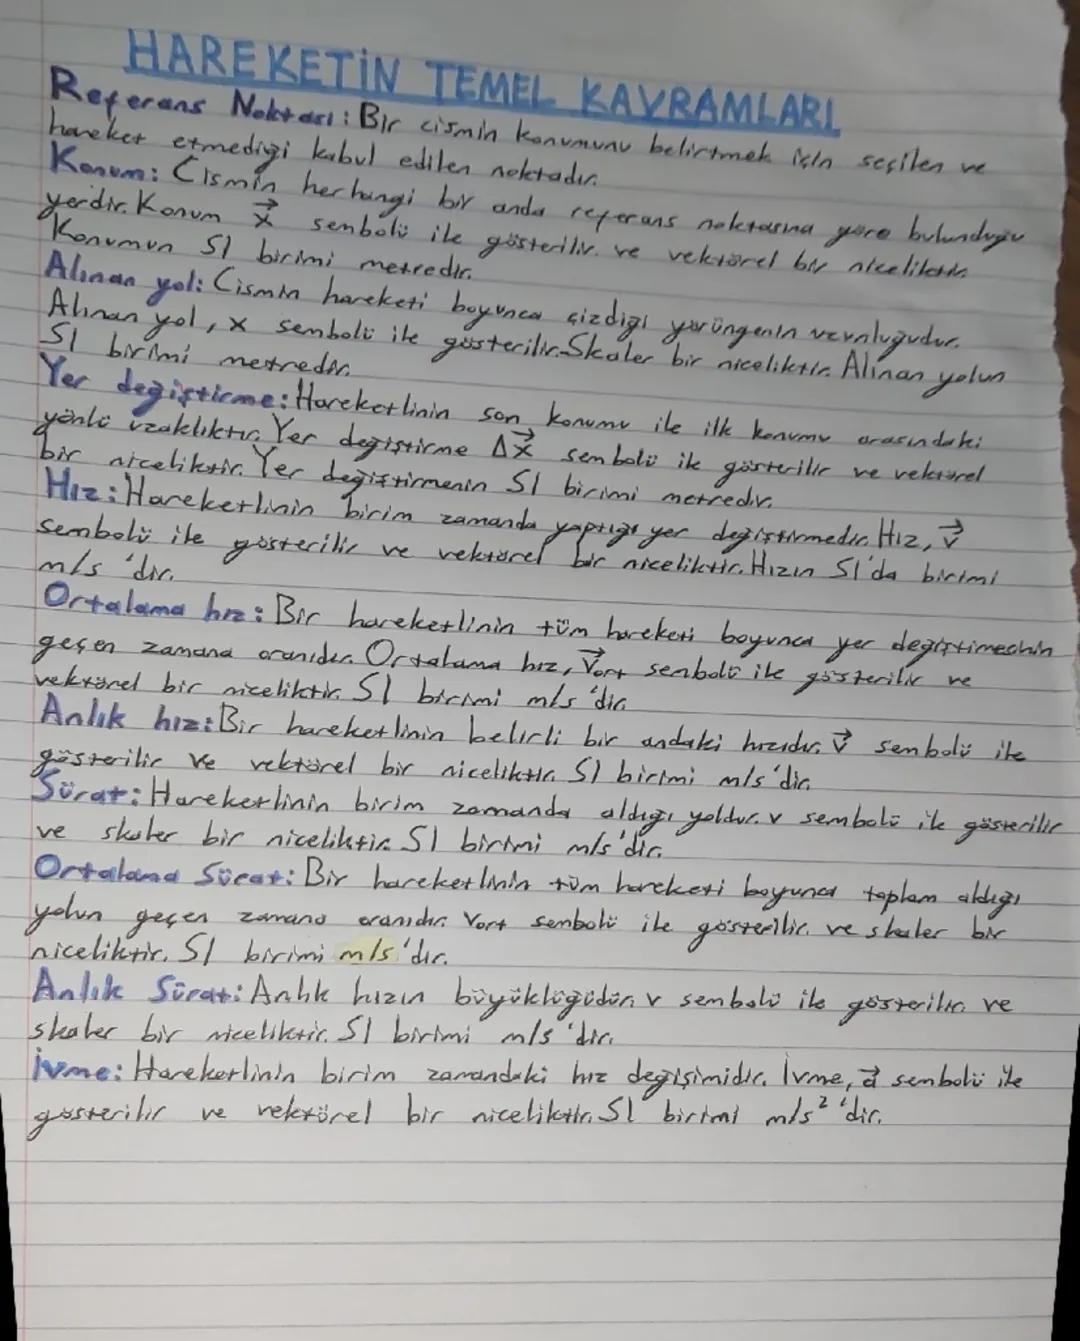 HAREKETİN TEMEL KAVRAMLARI
Referans Noktası: Bir cismin konumunu belirtmek için seçilen ve
hareket etmediği kabul edilen noktadır.
Konum: Cismin herhangi bir anda referans noktasına göre bulunduğu
yerdir. Konum x⃗ sembolü ile gösterilir. ve vektörel bir niceliktir.
Konumun SI birimi metredir.
Alınan yol: Cismin hareketi boyunca çizdiği yörüngenin uzunluğudur.
Alınan yol, x sembolü ile gösterilir. Skaler bir niceliktir. Alınan yolun
SI birimi metredir.
Yer değiştirme: Hareketlinin son konumu ile ilk konumu arasındaki
yönlü uzaklıktır. Yer değiştirme Δx⃗ sembolü ile gösterilir ve vektörel
bir niceliktir. Yer değiştirmenin SI birimi metredir.
Hız: Hareketlinin birim zamanda yaptığı yer değiştirmedir. Hız, v⃗
sembolü ile gösterilir ve vektörel bir niceliktir. Hızın SI'da birimi
m/s 'dir.
Ortalama hız: Bir hareketlinin tüm hareketi boyunca yer değiştirmesinin
geçen zamana oranıdır. Ortalama hız, v⃗ort sembolü ile gösterilir ve
vektörel bir niceliktir. SI birimi m/s 'dir.
Anlık hız: Bir hareketlinin belirli bir andaki hızıdır. v⃗ sembolü ile
gösterilir ve vektörel bir niceliktir. SI birimi m/s'dir.
Sürat: Hareketlinin birim zamanda aldığı yoldur. v sembolü ile gösterilir
ve skaler bir niceliktir. SI birimi m/s'dir.
Ortalama Sürat: Bir hareketlinin tüm hareketi boyunca toplam aldığı
yolun geçen zamana oranıdır. Vort sembolü ile gösterilir. ve skaler bir
niceliktir. SI birimi m/s'dir.
Anlık Sürat: Anlık hızın büyüklüğüdür. v sembolü ile gösterilir. ve
skaler bir niceliktir. SI birimi m/s 'dir.
İvme: Hareketlinin birim zamandaki hız değişimidir. İvme, a⃗ sembolü ile
gösterilir ve vektörel bir niceliktir. SI birimi m/s² 'dir.